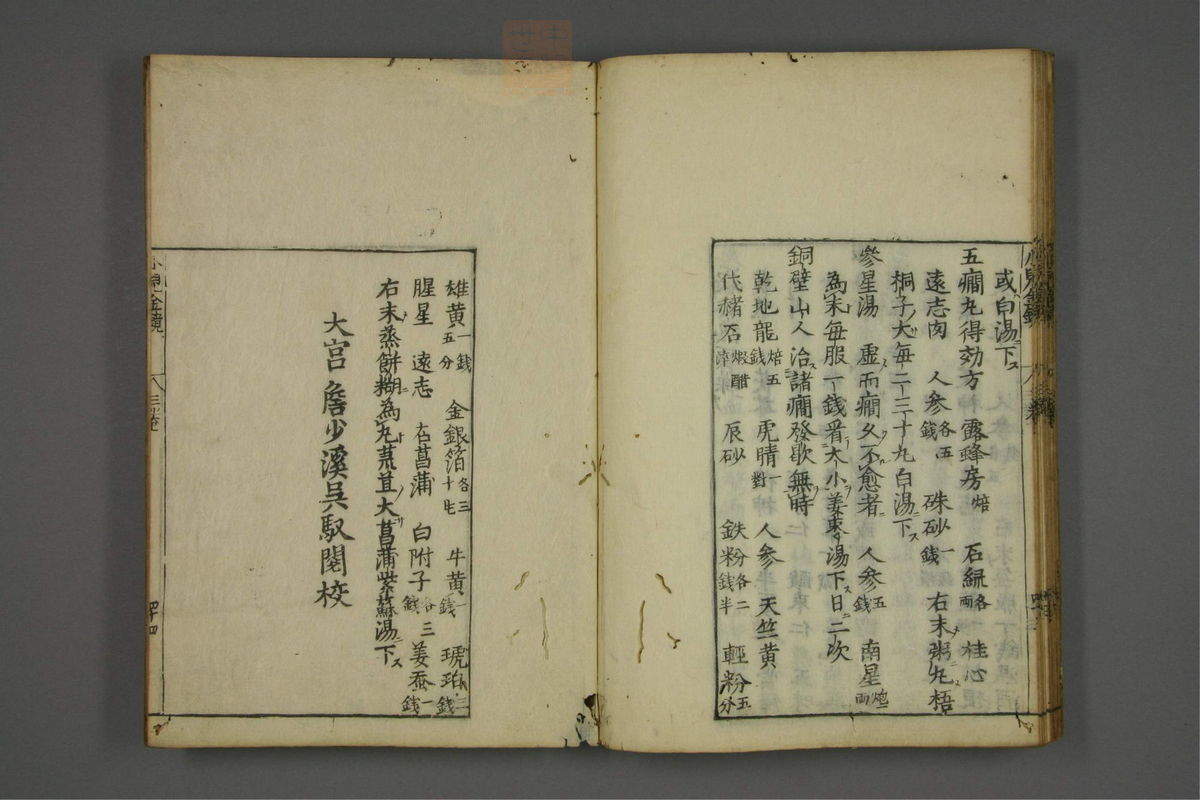 或白湯下ス
五癇丸得効方 露蜂房焙 石綎各兩 桂心
遠志肉 人參各五錢 硃砂一錢 右末粥丸梧
桐子大毎二三十丸白湯下ス
參星湯 虚而癇久不愈者 人參五錢 南星炮兩
為末毎服一錢 大小姜棗湯下日二次
銅壁山人 治諸癇發歇無時
乾地龍焙五錢 虎睛一對 人參 天竺黄
代赭石煅醋淬 辰砂 鉄粉各二錢半 輕粉五分
雄黄一錢五分 金銀箔各三十 牛黄一錢 琥珀二錢
腥星 遠志 石菖蒲 白附子各三錢 姜蚕一錢
右末蒸餅糊為丸芡 大菖蒲紫蘇湯下ス
大宮 詹少溪呉馭閲校
小兒金鏡
八三卷
四十四